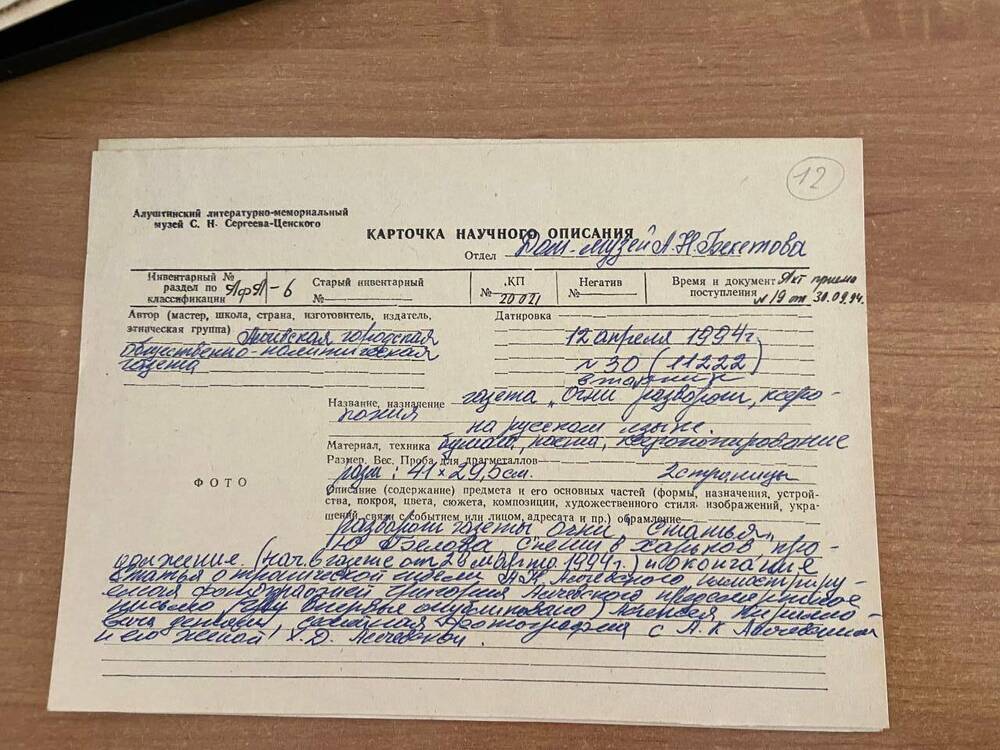 12
Алуштинский литературно-мемориальный
музей С. Н. Сергеева-Ценского
КАРТОЧКА НАУЧНОГО ОПИСАНИЯ
Отдел Дом-музей А.Н. Бекетова
Инвентарный №
раздел по
классификации АфА-6
Старый инвентарный
№
КП
№ 20021
Негатив
№
Время и документ
поступления Акт приема
№ 19 от 30.09.94.
Автор (мастер, школа, страна, изготовитель, издатель,
этническая группа) городская
общественно-политическая
газета
Датировка
12 апреля 1994г.
№ 30 (11222)
вторник
Название, назначение газета „Огни разворот, ксеро-
копия
на русском языке.
Материал, техника бумага, паста, ксерокопирование
Размер. Вес. Проба для драгметаллов
разм: 41×29,5см. 2 страницы
ФОТО
Описание (содержание) предмета и его основных частей (формы, назначения, устрой-
ства, покроя, цвета, сюжета, композиции, художественного стиля, изображений, укра-
шений, связи с событием или лицом, адресата и пр.) обрамление
разворот газеты Огни статья
Ю Белова Спеши в Харьков, про-
должение. (нач. в газете от 28 марта 1994г.) и окончание
статья о трагической гибели А.К. Алчевского, иллюстриру-
емая фотографией Григория Алчевского предсмертное
письмо, впервые опубликовано) Алексея Кирилло-
вича семейная фотография с А. К Алчевским
и его женой Х.Д. Алчевской.